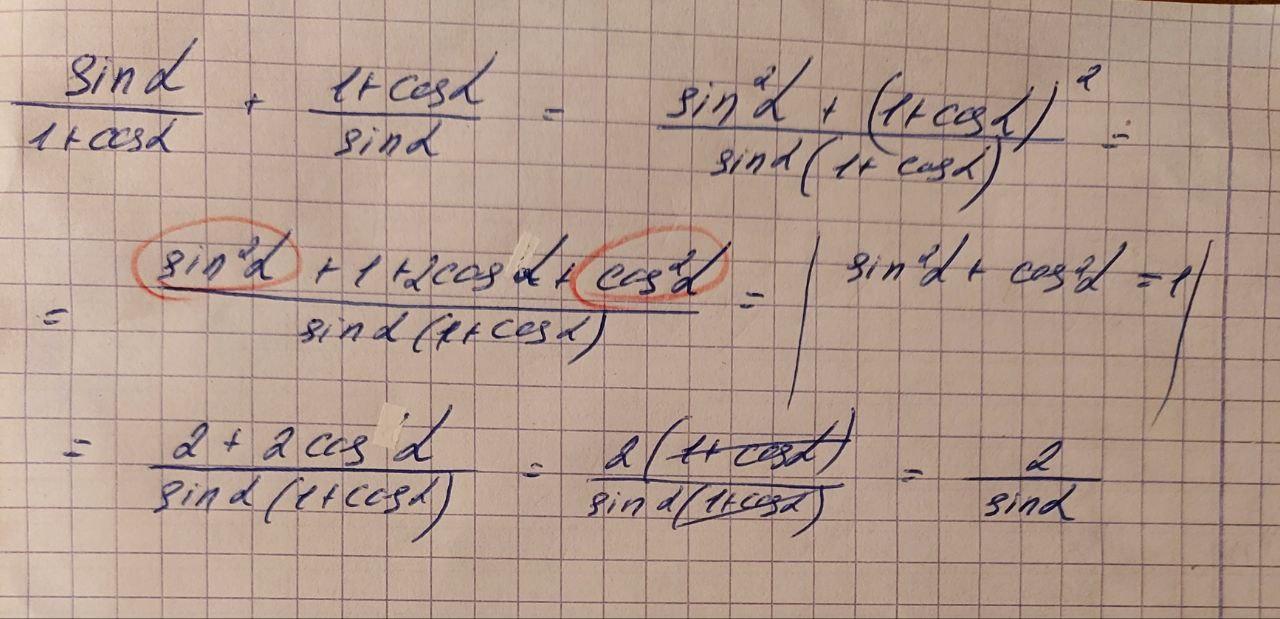 sinα/(1+cosα) + (1+cosα)/sinα = (sin²α + (1+cosα)²)/(sinα(1+cosα)) =
= (sin²α + 1+2cosα + cos²α)/(sinα(1+cosα)) = | sin²α + cos²α = 1 |
= (2+2cosα)/(sinα(1+cosα)) = 2(1+cosα)/(sinα(1+cosα)) = 2/sinα